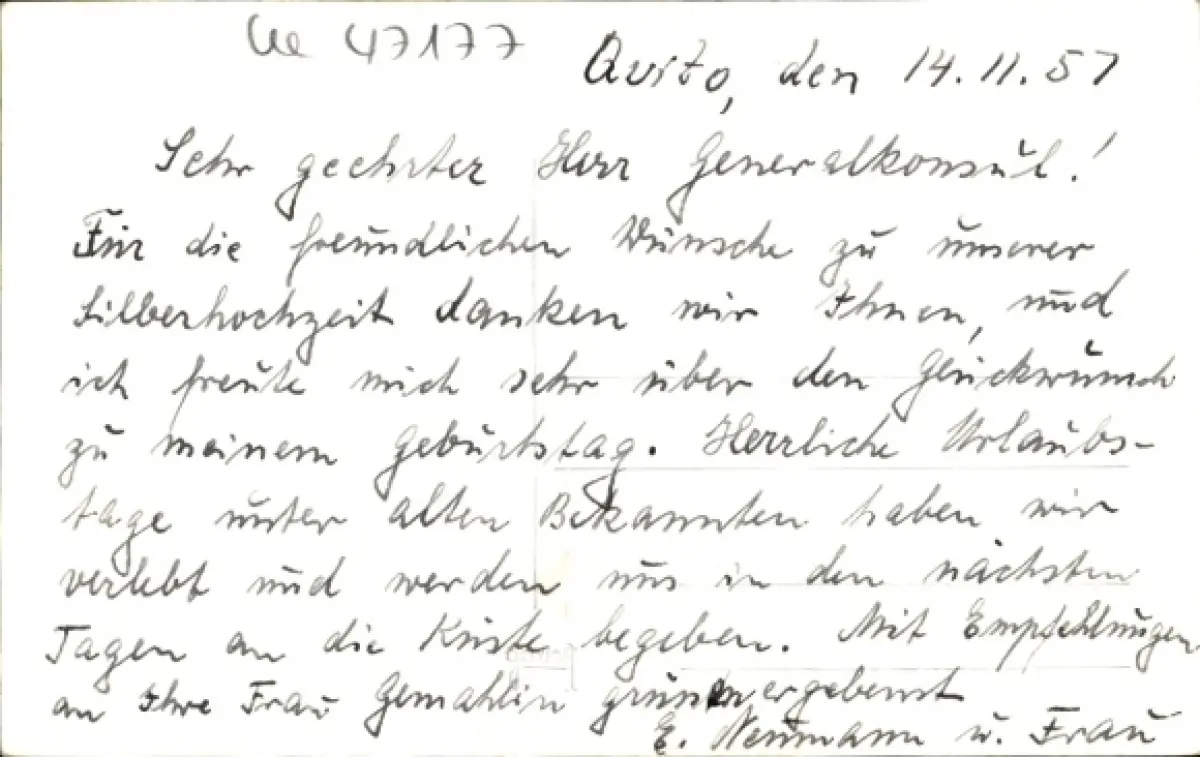 Ue 47177
Quito, den 14.11.57
Sehr geehrter Herr Generalkonsul!
Für die freundlichen Wünsche zu unserer
Silberhochzeit danken wir Ihnen, und
ich freute mich sehr über den Glückwunsch
zu meinem Geburtstag. Herrliche Urlaubs-
tage unter alten Bekannten haben wir
verlebt und werden uns in den nächsten
Tagen an die Küste begeben. Mit Empfehlungen
an Ihre Frau Gemahlin grüssen ergebenst
E. Neumann u. Frau